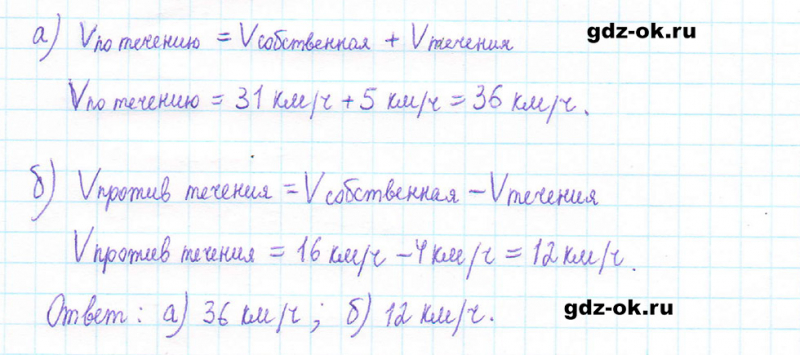 а) Vпо течению = Vсобственная + Vтечения
gdz-ok.ru
Vпо течению = 31 км/ч + 5 км/ч = 36 км/ч.
б) Vпротив течения = Vсобственная − Vтечения
Vпротив течения = 16 км/ч − 4 км/ч = 12 км/ч.
Ответ: а) 36 км/ч; б) 12 км/ч.
gdz-ok.ru